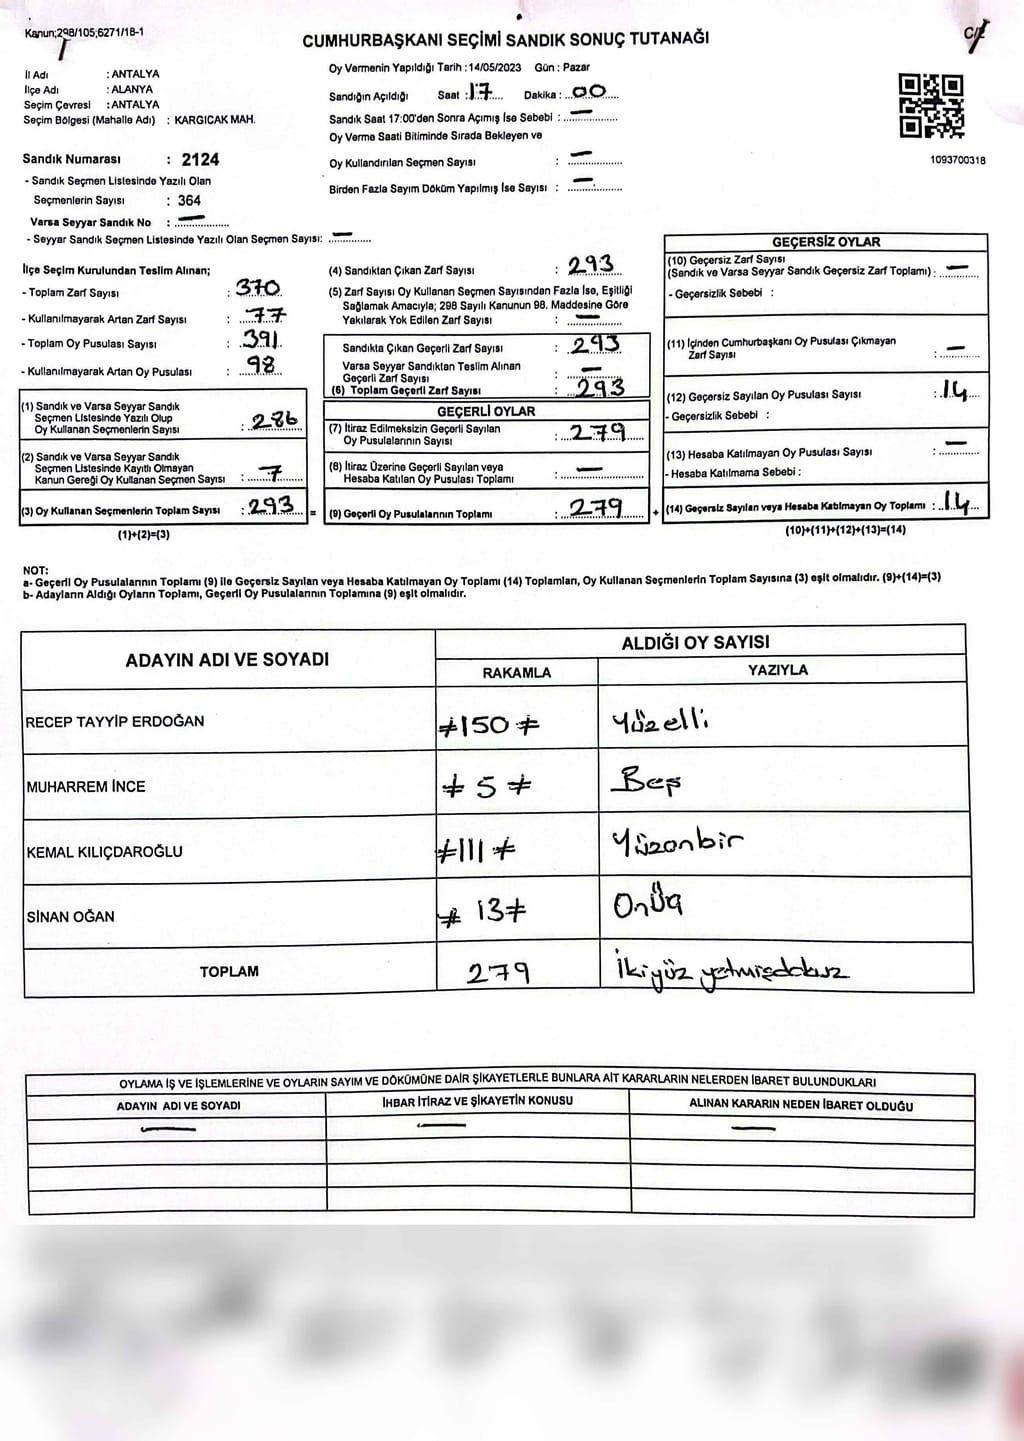 Kanun;298/105;6271/18-1
CUMHURBAŞKANI SEÇİMİ SANDIK SONUÇ TUTANAĞI
İl Adı : ANTALYA
İlçe Adı : ALANYA
Seçim Çevresi : ANTALYA
Seçim Bölgesi (Mahalle Adı) : KARGICAK MAH.
Sandık Numarası : 2124
- Sandık Seçmen Listesinde Yazılı Olan
Seçmenlerin Sayısı : 364
Varsa Seyyar Sandık No : —
- Seyyar Sandık Seçmen Listesinde Yazılı Olan Seçmen Sayısı: —
Oy Vermenin Yapıldığı Tarih : 14/05/2023 Gün : Pazar
Sandığın Açıldığı Saat : 17 Dakika : 00
Sandık Saat 17:00'den Sonra Açımış İse Sebebi : —
Oy Verme Saati Bitiminde Sırada Bekleyen ve
Oy Kullandırılan Seçmen Sayısı : —
Birden Fazla Sayım Döküm Yapılmış İse Sayısı : —
1093700318
İlçe Seçim Kurulundan Teslim Alınan;
- Toplam Zarf Sayısı : 370
- Kullanılmayarak Artan Zarf Sayısı : 77
- Toplam Oy Pusulası Sayısı : 391
- Kullanılmayarak Artan Oy Pusulası : 98
(1) Sandık ve Varsa Seyyar Sandık
Seçmen Listesinde Yazılı Olup
Oy Kullanan Seçmenlerin Sayısı : 286
(2) Sandık ve Varsa Seyyar Sandık
Seçmen Listesinde Kayıtlı Olmayan
Kanun Gereği Oy Kullanan Seçmen Sayısı : 7
(3) Oy Kullanan Seçmenlerin Toplam Sayısı : 293 =
(1)+(2)=(3)
(4) Sandıktan Çıkan Zarf Sayısı : 293
(5) Zarf Sayısı Oy Kullanan Seçmen Sayısından Fazla İse, Eşitliği
Sağlamak Amacıyla; 298 Sayılı Kanunun 98. Maddesine Göre
Yakılarak Yok Edilen Zarf Sayısı : —
Sandıkta Çıkan Geçerli Zarf Sayısı : 293
Varsa Seyyar Sandıktan Teslim Alınan
Geçerli Zarf Sayısı : —
(6) Toplam Geçerli Zarf Sayısı : 293
GEÇERLİ OYLAR
(7) İtiraz Edilmeksizin Geçerli Sayılan
Oy Pusulalarının Sayısı : 279
(8) İtiraz Üzerine Geçerli Sayılan veya
Hesaba Katılan Oy Pusulası Toplamı : —
(9) Geçerli Oy Pusulalarının Toplamı : 279 +
GEÇERSİZ OYLAR
(10) Geçersiz Zarf Sayısı
(Sandık ve Varsa Seyyar Sandık Geçersiz Zarf Toplamı) : —
- Geçersizlik Sebebi :
(11) İçinden Cumhurbaşkanı Oy Pusulası Çıkmayan
Zarf Sayısı : —
(12) Geçersiz Sayılan Oy Pusulası Sayısı : 14
- Geçersizlik Sebebi :
(13) Hesaba Katılmayan Oy Pusulası Sayısı : —
- Hesaba Katılmama Sebebi :
(14) Geçersiz Sayılan veya Hesaba Katılmayan Oy Toplamı : 14
(10)+(11)+(12)+(13)=(14)
NOT:
a- Geçerli Oy Pusulalarının Toplamı (9) ile Geçersiz Sayılan veya Hesaba Katılmayan Oy Toplamı (14) Toplamları, Oy Kullanan Seçmenlerin Toplam Sayısına (3) eşit olmalıdır. (9)+(14)=(3)
b- Adayların Aldığı Oyların Toplamı, Geçerli Oy Pusulalarının Toplamına (9) eşit olmalıdır.
ADAYIN ADI VE SOYADI
ALDIĞI OY SAYISI
RAKAMLA YAZIYLA
RECEP TAYYİP ERDOĞAN ≠150≠ Yüzelli
MUHARREM İNCE ≠5≠ Beş
KEMAL KILIÇDAROĞLU ≠111≠ Yüzonbir
SİNAN OĞAN ≠13≠ Onüç
TOPLAM 279 İkiyüz yetmişdokuz
OYLAMA İŞ VE İŞLEMLERİNE VE OYLARIN SAYIM VE DÖKÜMÜNE DAİR ŞİKAYETLERLE BUNLARA AİT KARARLARIN NELERDEN İBARET BULUNDUKLARI
ADAYIN ADI VE SOYADI İHBAR İTİRAZ VE ŞİKAYETİN KONUSU ALINAN KARARIN NEDEN İBARET OLDUĞU
— — —